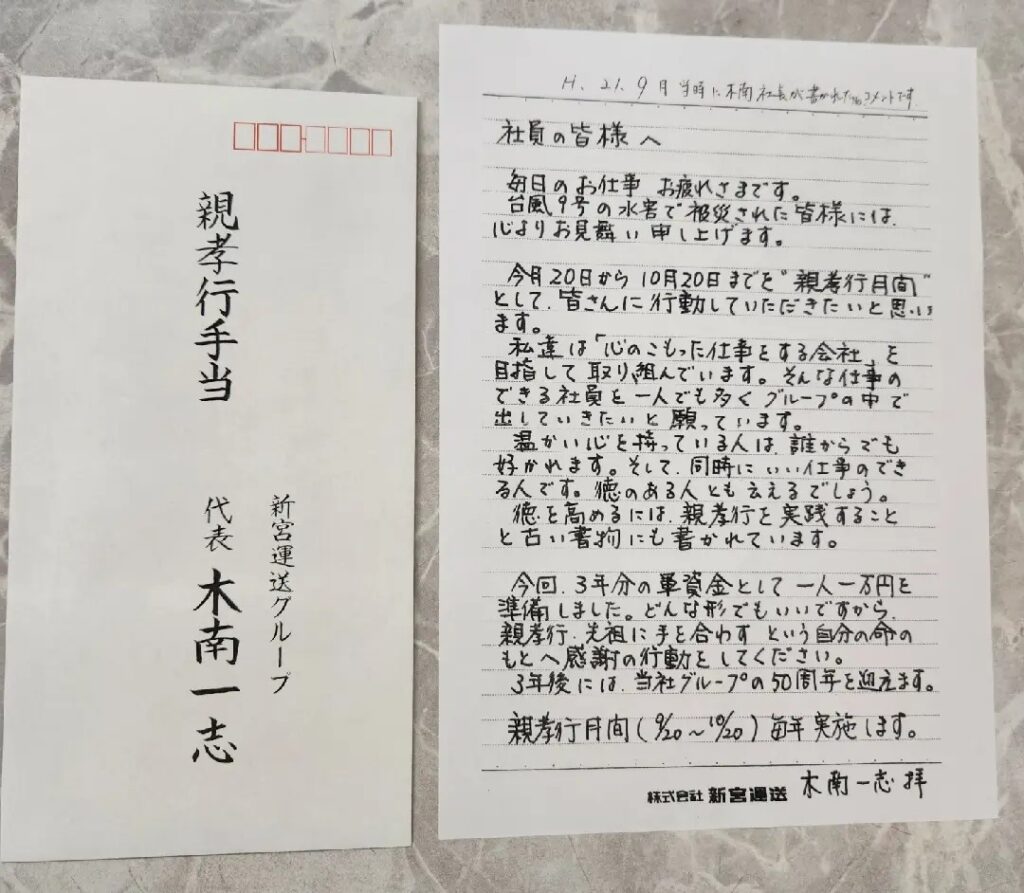 親孝行手当
新宮運送グループ
代表 木南一志
H. 21. 9月 当時に木南社長が書かれたコメントです
社員の皆様へ
毎日のお仕事 お疲れさまです。
台風9号の水害で被災された皆様には、
心よりお見舞い申し上げます。
今月20日から10月20日までを"親孝行月間"
として、皆さんに行動していただきたいと思い
ます。
私達は「心のこもった仕事をする会社」を
目指して取り組んでいます。そんな仕事の
できる社員を一人でも多くグループの中で
出していきたいと願っています。
温かい心を持っている人は、誰からでも
好かれます。そして、同時にいい仕事のでき
る人です。徳のある人とも云えるでしょう。
徳を高めるには、親孝行を実践すること
と古い書物にも書かれています。
今回、3年分の軍資金として一人一万円を
準備しました。どんな形でもいいですから、
親孝行、先祖に手を合わすという自分の命の
もとへ感謝の行動をしてください。
3年後には、当社グループの50周年を迎えます。
親孝行月間(9/20~10/20)毎年実施します。
株式会社 新宮運送 木南一志 拝